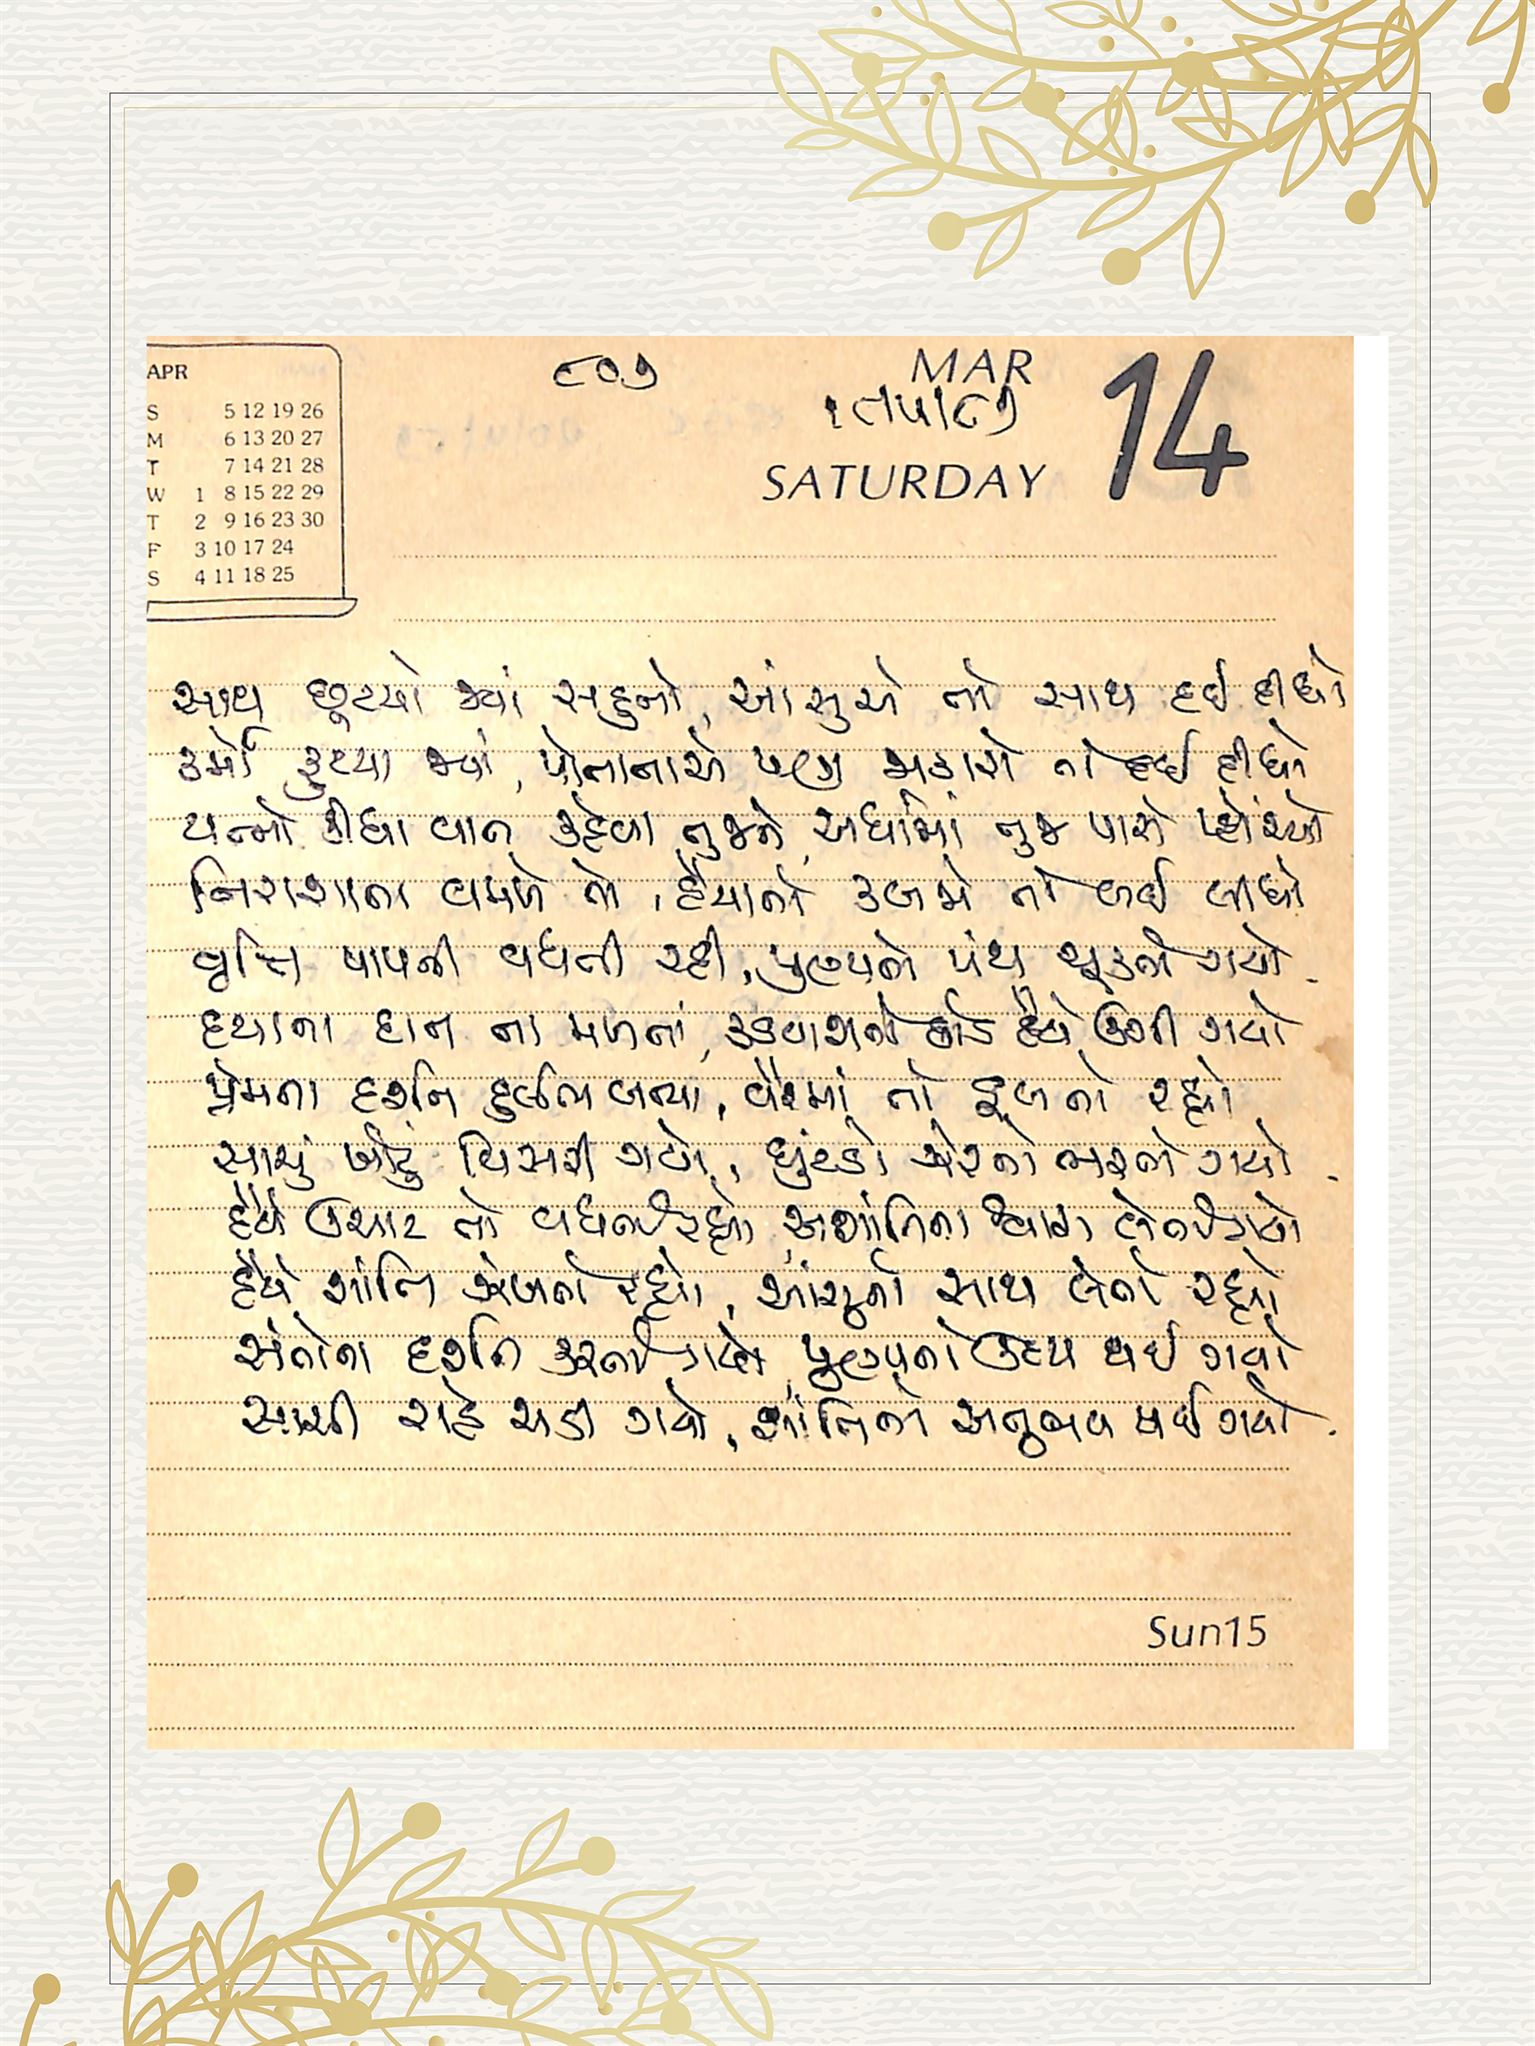 APR
S 5 12 19 26
M 6 13 20 27
T 7 14 21 28
W 1 8 15 22 29
T 2 9 16 23 30
F 3 10 17 24
S 4 11 18 25
૮૦૭
MAR
14
SATURDAY
સાથ છૂટયો જ્યાં સહુનો, આંસુએ તો સાથ દઈ દીધો
કર્મો ફુટયા જ્યાં, પોતાનાએ પણ જાકારો તો દઈ દીધો
યત્નો કીધા વાત કહેવા તુજને, અર્ધામાં તુજ પાસે પ્હોંચ્યો
નિરાશાના વમળે તો, હૈયાનો કબજો તો લઈ લીધો
વૃત્તિ પાપની વધતી રહી, પુણ્યનો પંથ ચૂકતો ગયો
દયાના દાન ના મળતાં, કડવાશનો કાંટો હૈયે ઉગી ગયો
પ્રેમના દર્શન દુર્લભ બન્યા, વૈરમાં તો ડૂબતો રહ્યો
સાચું ખોટું વિસરી ગયો, ઘુંટડો ઝેરનો ભરતો ગયો
હૈયે ઉચાટ તો વધતો રહ્યો, અશાંતિના શ્વાસ લેતો ગયો
હૈયે શાંતિ ઝંખતો રહ્યો, આંસુનો સાથ લેતો રહ્યો
સંતોના દર્શન કરતો ગયો, પુણ્યનો ઉદય થઈ ગયો
સાચી રાહે ચડી ગયો, શાંતિનો અનુભવ થઈ ગયો
Sun15